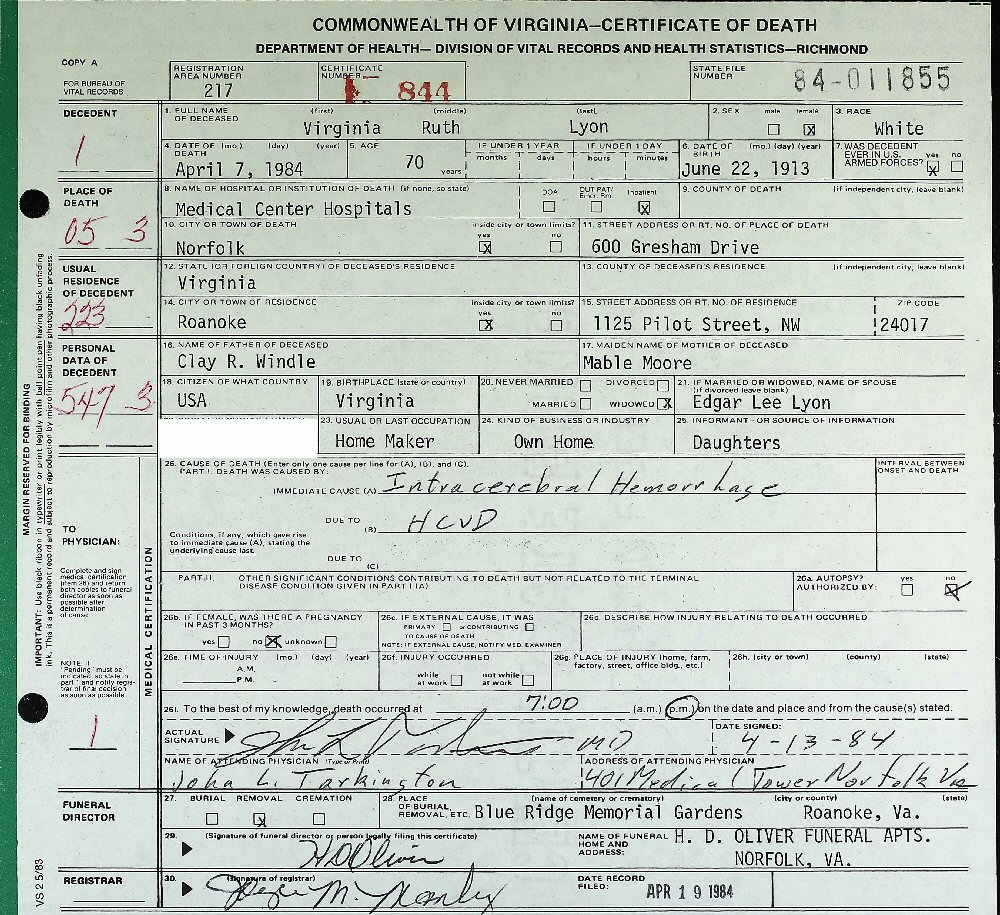 COMMONWEALTH OF VIRGINIA—CERTIFICATE OF DEATH
DEPARTMENT OF HEALTH— DIVISION OF VITAL RECORDS AND HEALTH STATISTICS—RICHMOND
COPY A
FOR BUREAU OF VITAL RECORDS
REGISTRATION AREA NUMBER 217
CERTIFICATE NUMBER 844
STATE FILE NUMBER 84-011855
DECEDENT
1
1. FULL NAME OF DECEASED (first) (middle) (last)
Virginia Ruth Lyon
2. SEX male female X
3. RACE White
4. DATE OF DEATH (mo.) (day) (year)
April 7, 1984
5. AGE 70 years
IF UNDER 1 YEAR months days
IF UNDER 1 DAY hours minutes
6. DATE OF BIRTH (mo.) (day) (year)
June 22, 1913
7. WAS DECEDENT EVER IN U.S. ARMED FORCES? yes X no
PLACE OF DEATH
05 3
8. NAME OF HOSPITAL OR INSTITUTION OF DEATH (if none, so state)
Medical Center Hospitals
DOA OUT PAT/ Emer. Rm. Inpatient X
9. COUNTY OF DEATH (if independent city, leave blank)
10. CITY OR TOWN OF DEATH inside city or town limits? yes X no
Norfolk
11. STREET ADDRESS OR RT. NO. OF PLACE OF DEATH
600 Gresham Drive
USUAL RESIDENCE OF DECEDENT
223
12. STATE (OR FOREIGN COUNTRY) OF DECEASED'S RESIDENCE
Virginia
13. COUNTY OF DECEASED'S RESIDENCE (if independent city, leave blank)
14. CITY OR TOWN OF RESIDENCE inside city or town limits? yes X no
Roanoke
15. STREET ADDRESS OR RT. NO. OF RESIDENCE ZIP CODE
1125 Pilot Street, NW 24017
PERSONAL DATA OF DECEDENT
547 3
16. NAME OF FATHER OF DECEASED
Clay R. Windle
17. MAIDEN NAME OF MOTHER OF DECEASED
Mable Moore
18. CITIZEN OF WHAT COUNTRY
USA
19. BIRTHPLACE (state or country)
Virginia
20. NEVER MARRIED DIVORCED
MARRIED WIDOWED X
21. IF MARRIED OR WIDOWED, NAME OF SPOUSE (if divorced leave blank)
Edgar Lee Lyon
23. USUAL OR LAST OCCUPATION
Home Maker
24. KIND OF BUSINESS OR INDUSTRY
Own Home
25. INFORMANT - OR SOURCE OF INFORMATION
Daughters
MARGIN RESERVED FOR BINDING
IMPORTANT: Use black ribbon in typewriter or print legibly with ball point pen having black unfading ink. This is a permanent record and subject to reproduction by microfilm and other photographic process.
TO PHYSICIAN:
Complete and sign medical certification (item 26) and return both copies to funeral director as soon as possible after determination of cause.
MEDICAL CERTIFICATION
26. CAUSE OF DEATH (Enter only one cause per line for (A), (B), and (C).
PART I. DEATH WAS CAUSED BY:
INTERVAL BETWEEN ONSET AND DEATH
IMMEDIATE CAUSE (A) Intracerebral Hemorrhage
DUE TO (B) HCVD
Conditions, if any, which gave rise to immediate cause (A), stating the underlying cause last.
DUE TO (C)
PART II. OTHER SIGNIFICANT CONDITIONS CONTRIBUTING TO DEATH BUT NOT RELATED TO THE TERMINAL DISEASE CONDITION GIVEN IN PART I (A)
26a. AUTOPSY? AUTHORIZED BY: yes no X
26b. IF FEMALE, WAS THERE A PREGNANCY IN PAST 3 MONTHS?
yes no X unknown
26c. IF EXTERNAL CAUSE, IT WAS
PRIMARY or CONTRIBUTING
TO CAUSE OF DEATH
NOTE: IF EXTERNAL CAUSE, NOTIFY MED. EXAMINER
26d. DESCRIBE HOW INJURY RELATING TO DEATH OCCURRED
NOTE: If "Pending" must be indicated, so state in part I and notify registrar of final decision as soon as possible.
26e. TIME OF INJURY (mo.) (day) (year)
A.M.
P.M.
26f. INJURY OCCURRED
while at work not while at work
26g. PLACE OF INJURY (home, farm, factory, street, office bldg., etc.)
26h. (city or town) (county) (state)
26i. To the best of my knowledge, death occurred at 7:00 (a.m.) (p.m.) on the date and place and from the cause(s) stated.
1
ACTUAL SIGNATURE John L. Tarkington MD
DATE SIGNED:
4-13-84
NAME OF ATTENDING PHYSICIAN (Type or Print)
John L. Tarkington
ADDRESS OF ATTENDING PHYSICIAN
401 Medical Tower Norfolk Va
FUNERAL DIRECTOR
27. BURIAL REMOVAL X CREMATION
28. PLACE OF BURIAL, REMOVAL, ETC. (name of cemetery or crematory) (city or county) (state)
Blue Ridge Memorial Gardens Roanoke, Va.
29. (Signature of funeral director or person legally filing this certificate)
HD Oliver
NAME OF FUNERAL HOME AND ADDRESS:
H. D. OLIVER FUNERAL APTS.
NORFOLK, VA.
VS 2 5/83
REGISTRAR
30. (Signature of registrar)
DATE RECORD FILED: APR 19 1984